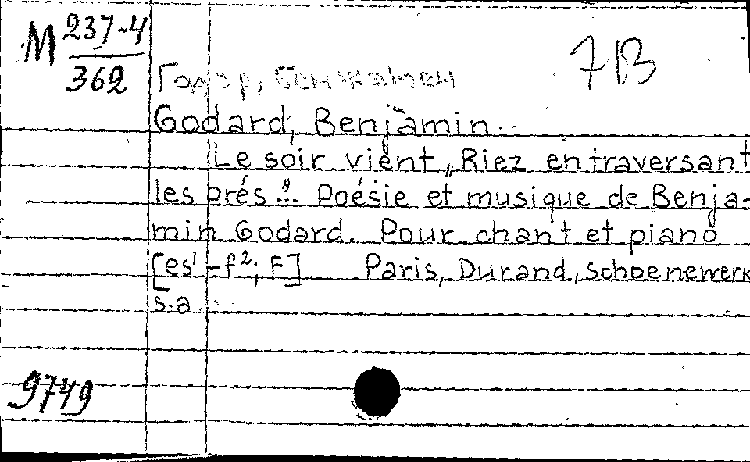 M 237-4
362
7В
Годар, Бенжамен
Godard, Benjamin.
Le soir vient „Riez en traversant
les prés"... Poésie et musique de Benja-
min Godard. Pour chant et piano
[es¹-f²; F] Paris, Durand, Schoenewerk
s.a.
9749